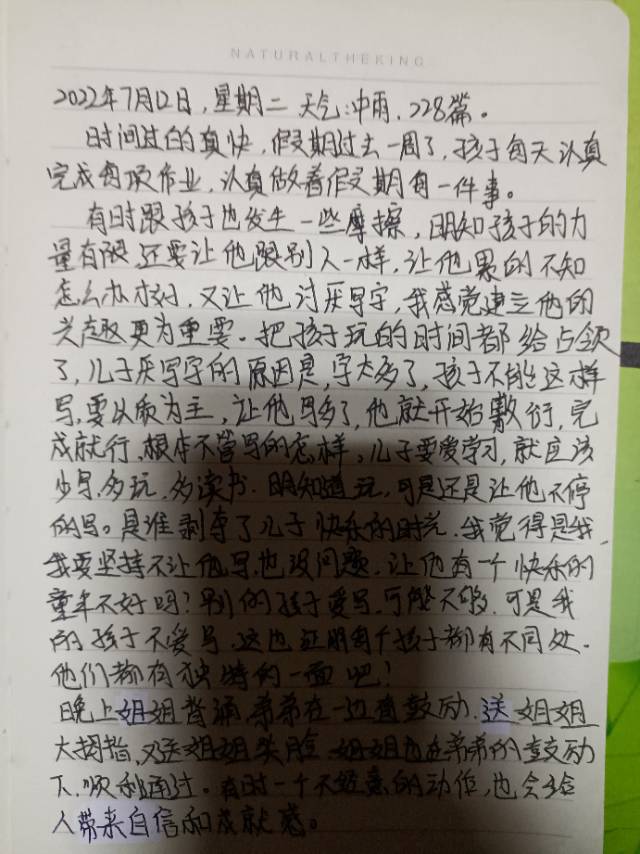 NATURALTHEKING
2022年7月12日,星期二 天气:中雨,228篇。
时间过的真快,假期过去一周了,孩子每天认真
完成每项作业,认真做着假期每一件事。
有时跟孩子也发生一些摩擦,明知孩子的力
量有限还要让他跟别人一样,让他累的不知
怎么办才好,又让他讨厌写字,我感觉建立他的
兴趣更为重要。把孩子玩的时间都给占领
了,儿子厌写字的原因是,字太多了,孩子不能这样
写,要以质为主,让他写多了,他就开始敷衍,完
成就行,根本不管写的怎样,儿子要爱学习,就应该
少写,多玩,多读书.明知道玩,可是还是让他不停
的写。是谁剥夺了儿子快乐的时光.我觉得是我,
我要坚持不让他写,也没问题.让他有一个快乐的
童年不好吗?别的孩子爱写,可能不够,可是我
的孩子不爱写.这也证明每个孩子都有不同处.
他们都有独特的一面吧!
晚上姐姐背诵,弟弟在一边直鼓励.送姐姐
大拇指,又送姐姐笑脸.姐姐也在弟弟的鼓励
下,顺利通过。有时一个不经意的动作,也会给
人带来自信和成就感。